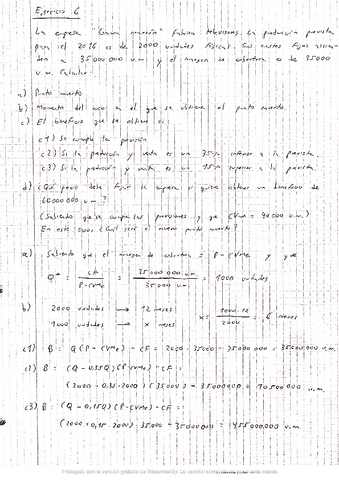 Ejercicio 6
La empresa "Gran visión" fabrica televisores. La producción prevista
para el 2016 es de 2000 unidades físicas. Sus costes fijos ascien-
den a 35 000 000 u.m. y el margen de cobertura es de 35000
u.m. Calcular:
a) Punto muerto
b) Momento del año en el que se obtiene el punto muerto.
c) El beneficio que se obtiene si:
c1) Se cumple la previsión
c2) Si la producción y venta es un 35% inferior a la prevista.
c3) Si la producción y venta es un 15% superior a la prevista.
d) ¿Qué precio debe fijar la empresa si quiere obtener un beneficio de
60000000 u.m.?
(Sabiendo que se cumplen las previsiones y que CVMe = 90 000 u.m.)
En este caso ¿Cuál será el nuevo punto muerto?
a) Sabiendo que el margen de cobertura = P - CVMe y que
Q* = CF / P-CVMe = 35 000 000 u.m. / 35000 u.m. = 1000 unidades
b) 2000 unidades → 12 meses
1000 unidades → x meses
x = 1000·12 / 2000 = 6 meses
c1) B = Q (P - CVMe) - CF = 2000 · 35000 - 35 000 000 = 35 000 000 u.m.
c2) B = (Q - 0,35Q) (P - CVMe) - CF =
(2000 - 0,35·2000) (35000) - 35000000 = 10 500 000 u.m.
c3) B = (Q - 0,15Q) (P - CVMe) - CF =
(2000 + 0,15·2000) · 35000 - 35000000 = 455000000 u.m.